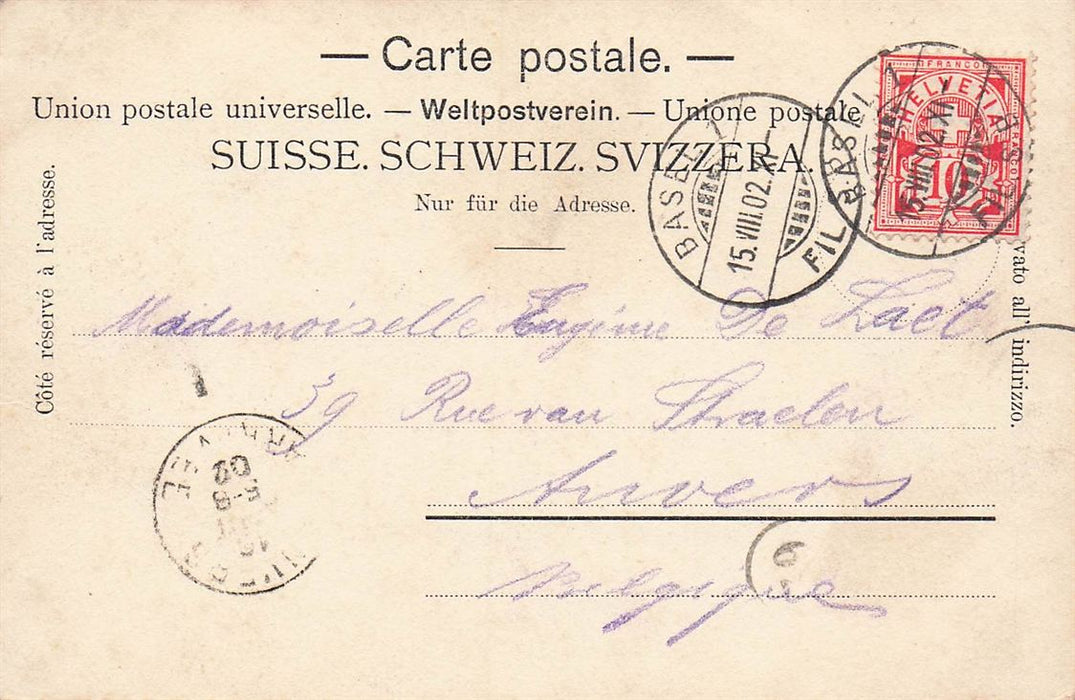 — Carte postale. —
Union postale universelle. — Weltpostverein. — Unione postale
SUISSE. SCHWEIZ. SVIZZERA.
Nur für die Adresse.
Côté réservé à l'adresse.
vato all' indirizzo.
FRANCO
HELVETIA
10
BASEL 1
15.VIII.02.XI
FIL
BASEL 1
15.VIII.02.XI–
FIL
Mademoiselle Eugénie De Laet
39 Rue van Straelen
Anvers
Belgique
02
6